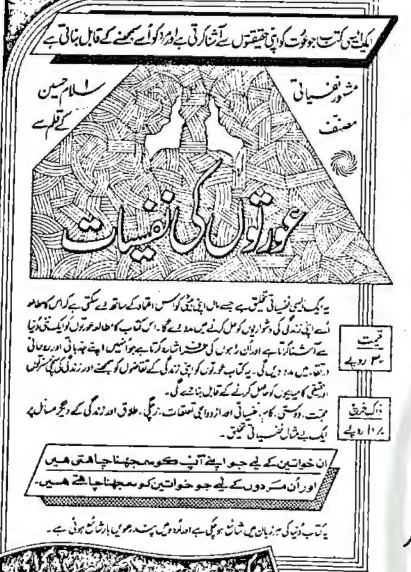 ایک ایسی کتاب جو عورت کو اپنی حقیقتوں سے آشنا کرتی ہے اور مرد کو اُسے سمجھنے کے قابل بناتی ہے
مشہور نفسیاتی
مصنف
سلام حسین
کے قلم سے
عورتوں کی نفسیات
یہ ایک ایسی نفسیاتی تخلیق ہے جسے ماں اپنی بیٹی کو اس اعتماد کے ساتھ دے سکتی ہے کہ اس کا مطالعہ
اُسے اپنی زندگی کی دشواریوں کو حل کرنے میں مدد دے گا۔ اس کتاب کا مطالعہ عورتوں کو ایک نئی دُنیا
سے آشنا کرتا ہے اور اُن راہوں کی طرف اشارہ کرتا ہے جو انہیں اپنے جذباتی اور روحانی
ارتقا میں مدد دیں گی۔ یہ کتاب عورتوں کو اپنی زندگی کے تقاضوں کو سمجھنے اور زندگی کی سچی
اور حقیقی کامیابیوں کو حاصل کرنے کے قابل بنائے گی۔
محبت، دوستی، کام، نفسیاتی اور ازدواجی تعلقات، زچگی، طلاق اور زندگی کے دیگر مسائل پر
ایک بے مثال نفسیاتی تخلیق۔
قیمت
۳۰ روپے
ڈاک خرچ
۱۰ روپے
ان خواتین کے لیے جو اپنے آپ کو سمجھنا چاہتی ہیں
اور اُن مردوں کے لیے جو خواتین کو سمجھنا چاہتے ہیں۔
یہ کتاب دُنیا کی ہر زبان میں شائع ہو چکی ہے اور اُردو میں پندرھویں بار شائع ہوئی ہے۔